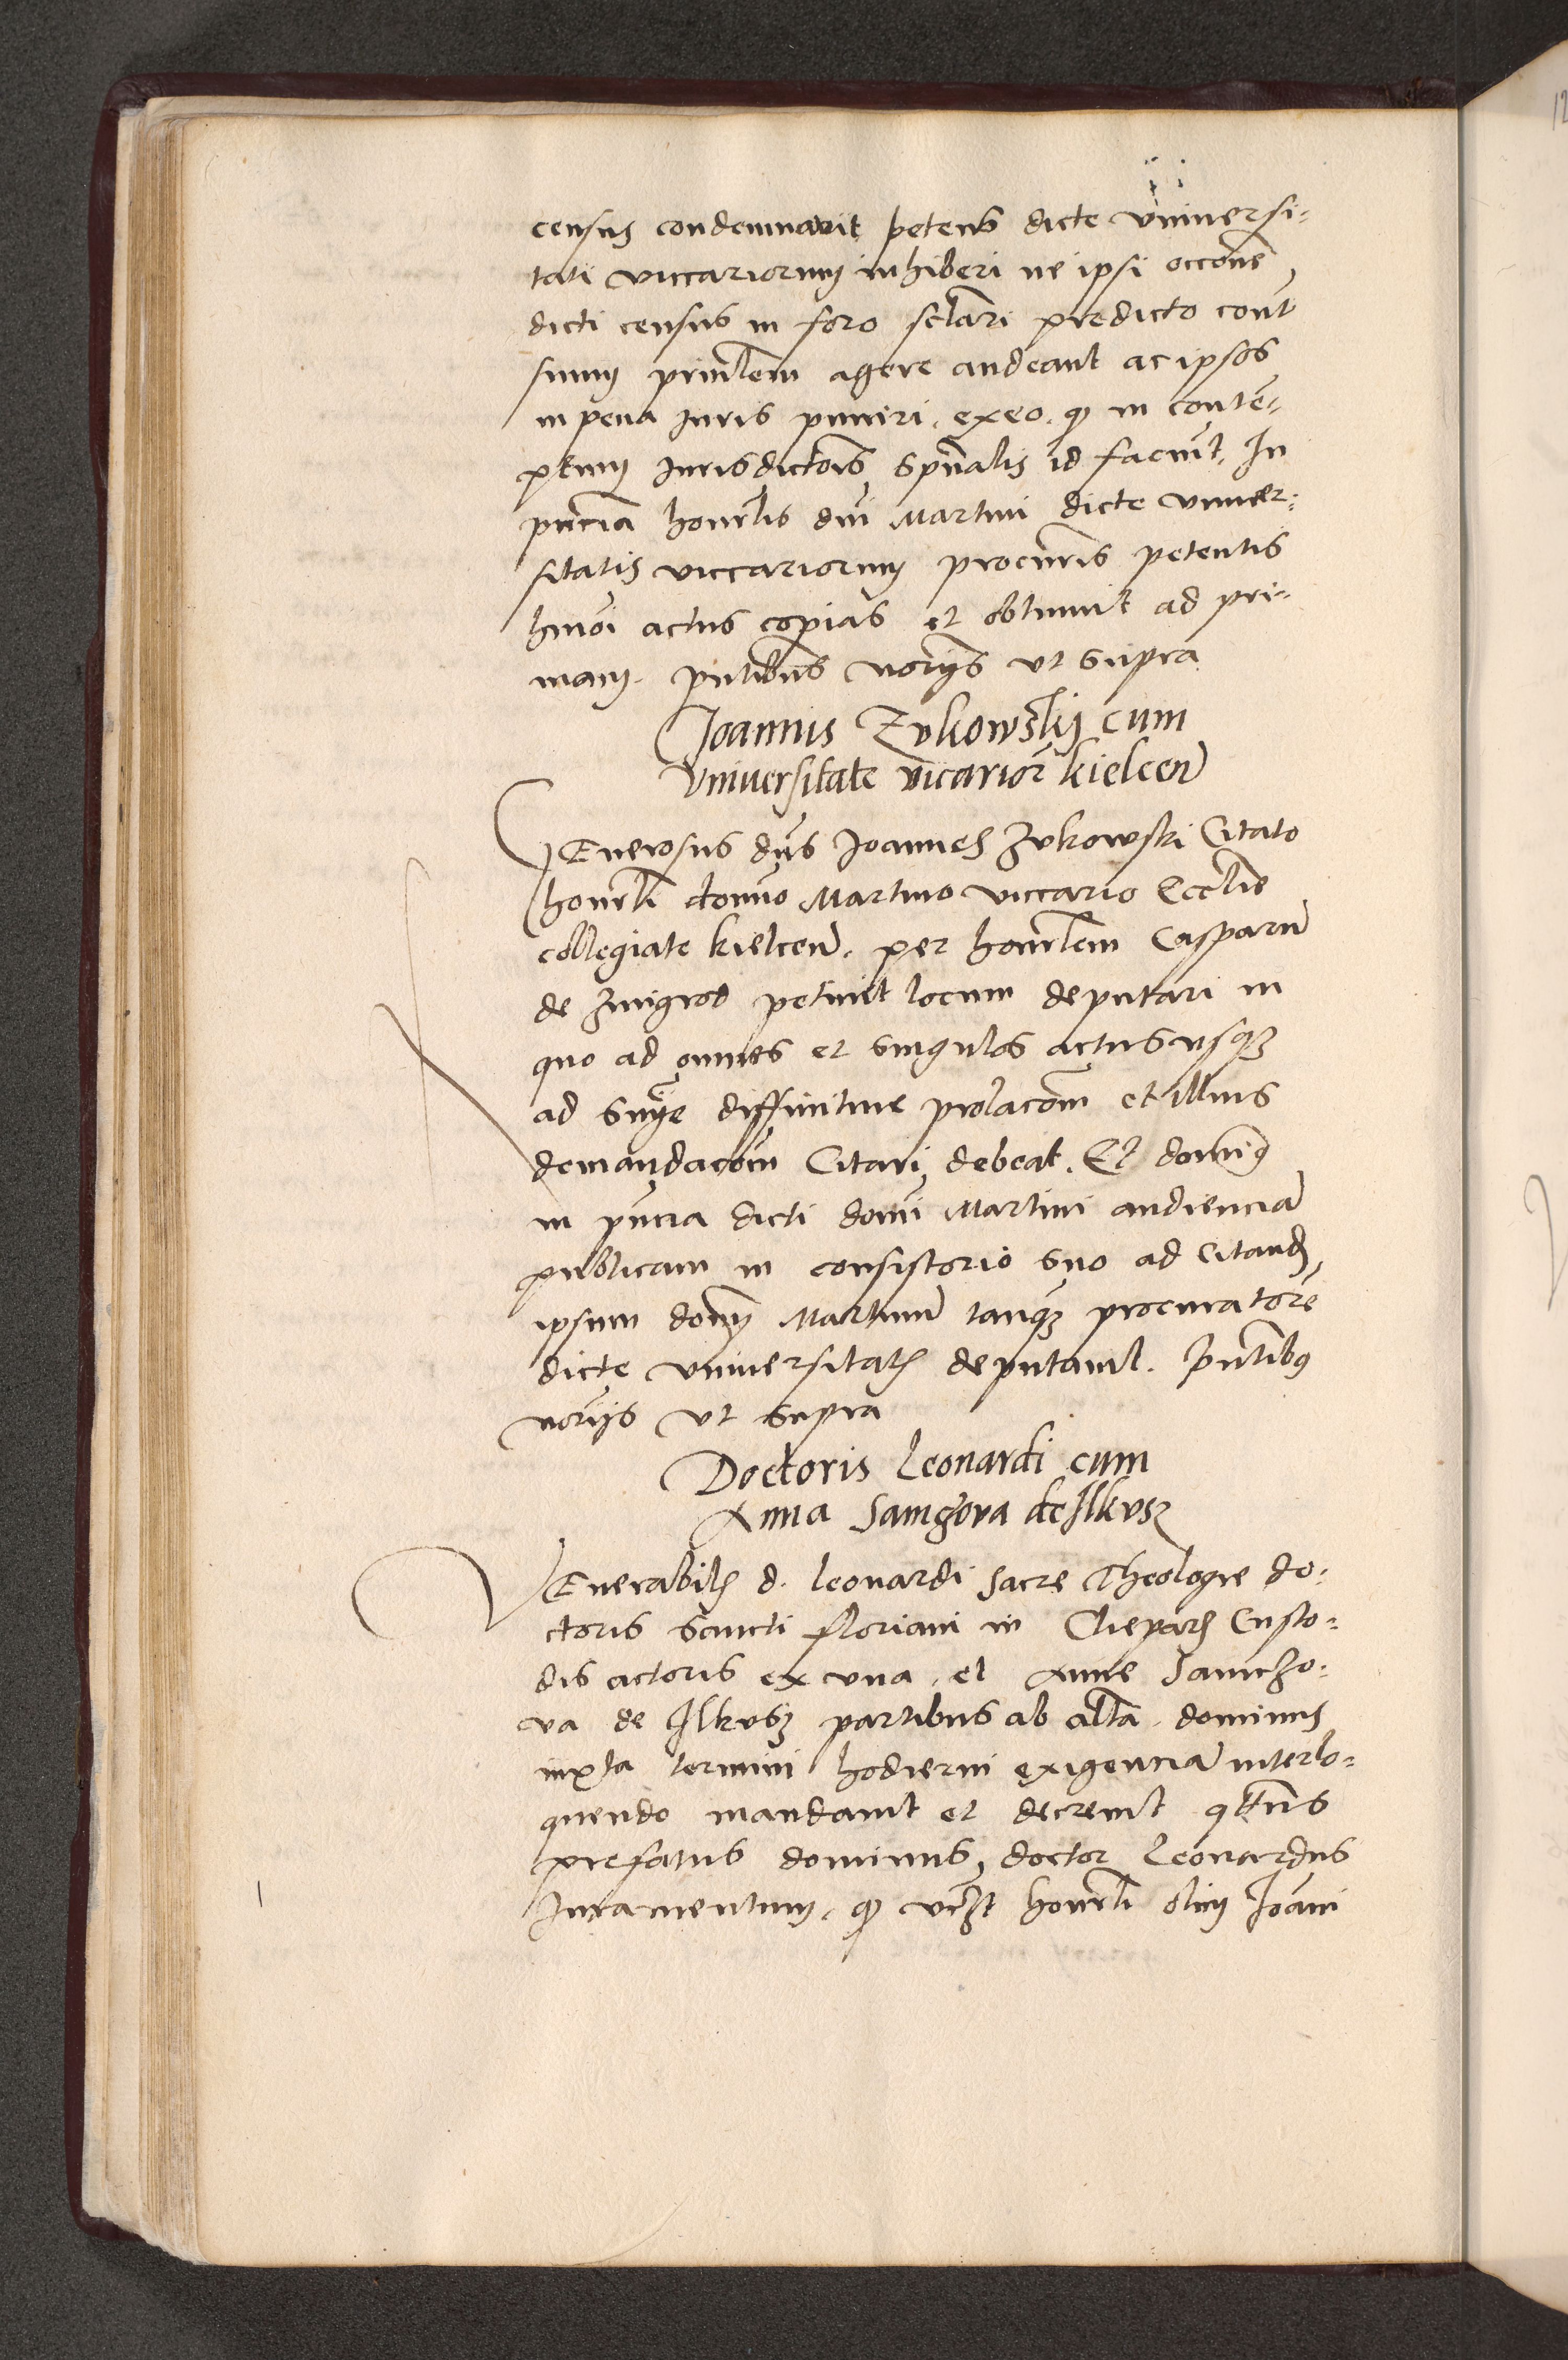 census condemnavit petens dicte Universi-
tati viccariorum inhiberi ne ipsi occone
dicti census in foro sclari predicto cont
suum prinlem agere audeant ac ipsos
in pena Iuris puniri, exeo, q in conte-
ptum Iurisdictois spualis id faciunt, In
pncia honrlis dni Martini dicte univer-
sitatis viccariorum procuris petentis
hmoi actus copias et obtinuit ad pri-
mam. pntibus norijs ut supra
Joannis Zukowskij cum
Universitate vicarior kielcen
GEnerosus dns Joannes Zukowski Citato
honrli domno Martino viccario Ecclie
collegiate kielcen. per honrlem Casparu
de Zmigrod petiuit locum deputari in
quo ad omnes et singulos actus usq
ad snie diffinitive prolacom et illius
demandacom Citari debeat. Et domin9
in pncia dicti domi Martini audiencia
publicam in consistorio suo ad citand
ipsum dom Martinu tanq procuratore
dicte universitatis deputauit. Pntibus
norijs ut supra
Doctoris Leonardi cum
Anna Samczova de Ilkusz
VEnerabilis d. Leonardi Sacre Theologie do-
ctoris Sancti Floriani in Clepars Custo-
dis actoris ex una, et Anne Samczo-
va de Ilkusz partibus ab alta. dominus
iuxta termini hodierni exigencia interlo-
quendo mandauit et decreuit qtnus
prefatus dominus doctor Leonardus
Iuramentum, q honrli olim Joani